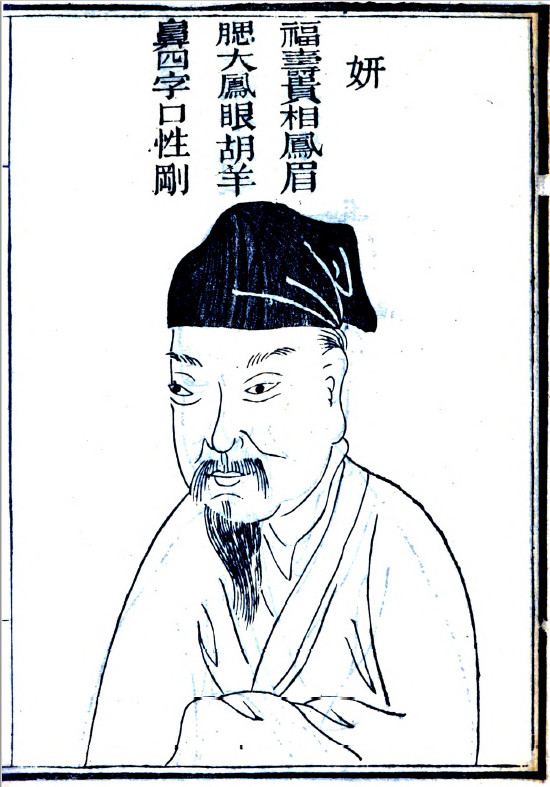 妍
福壽貴相鳳眉
腮大鳳眼胡羊
鼻四字口性剛